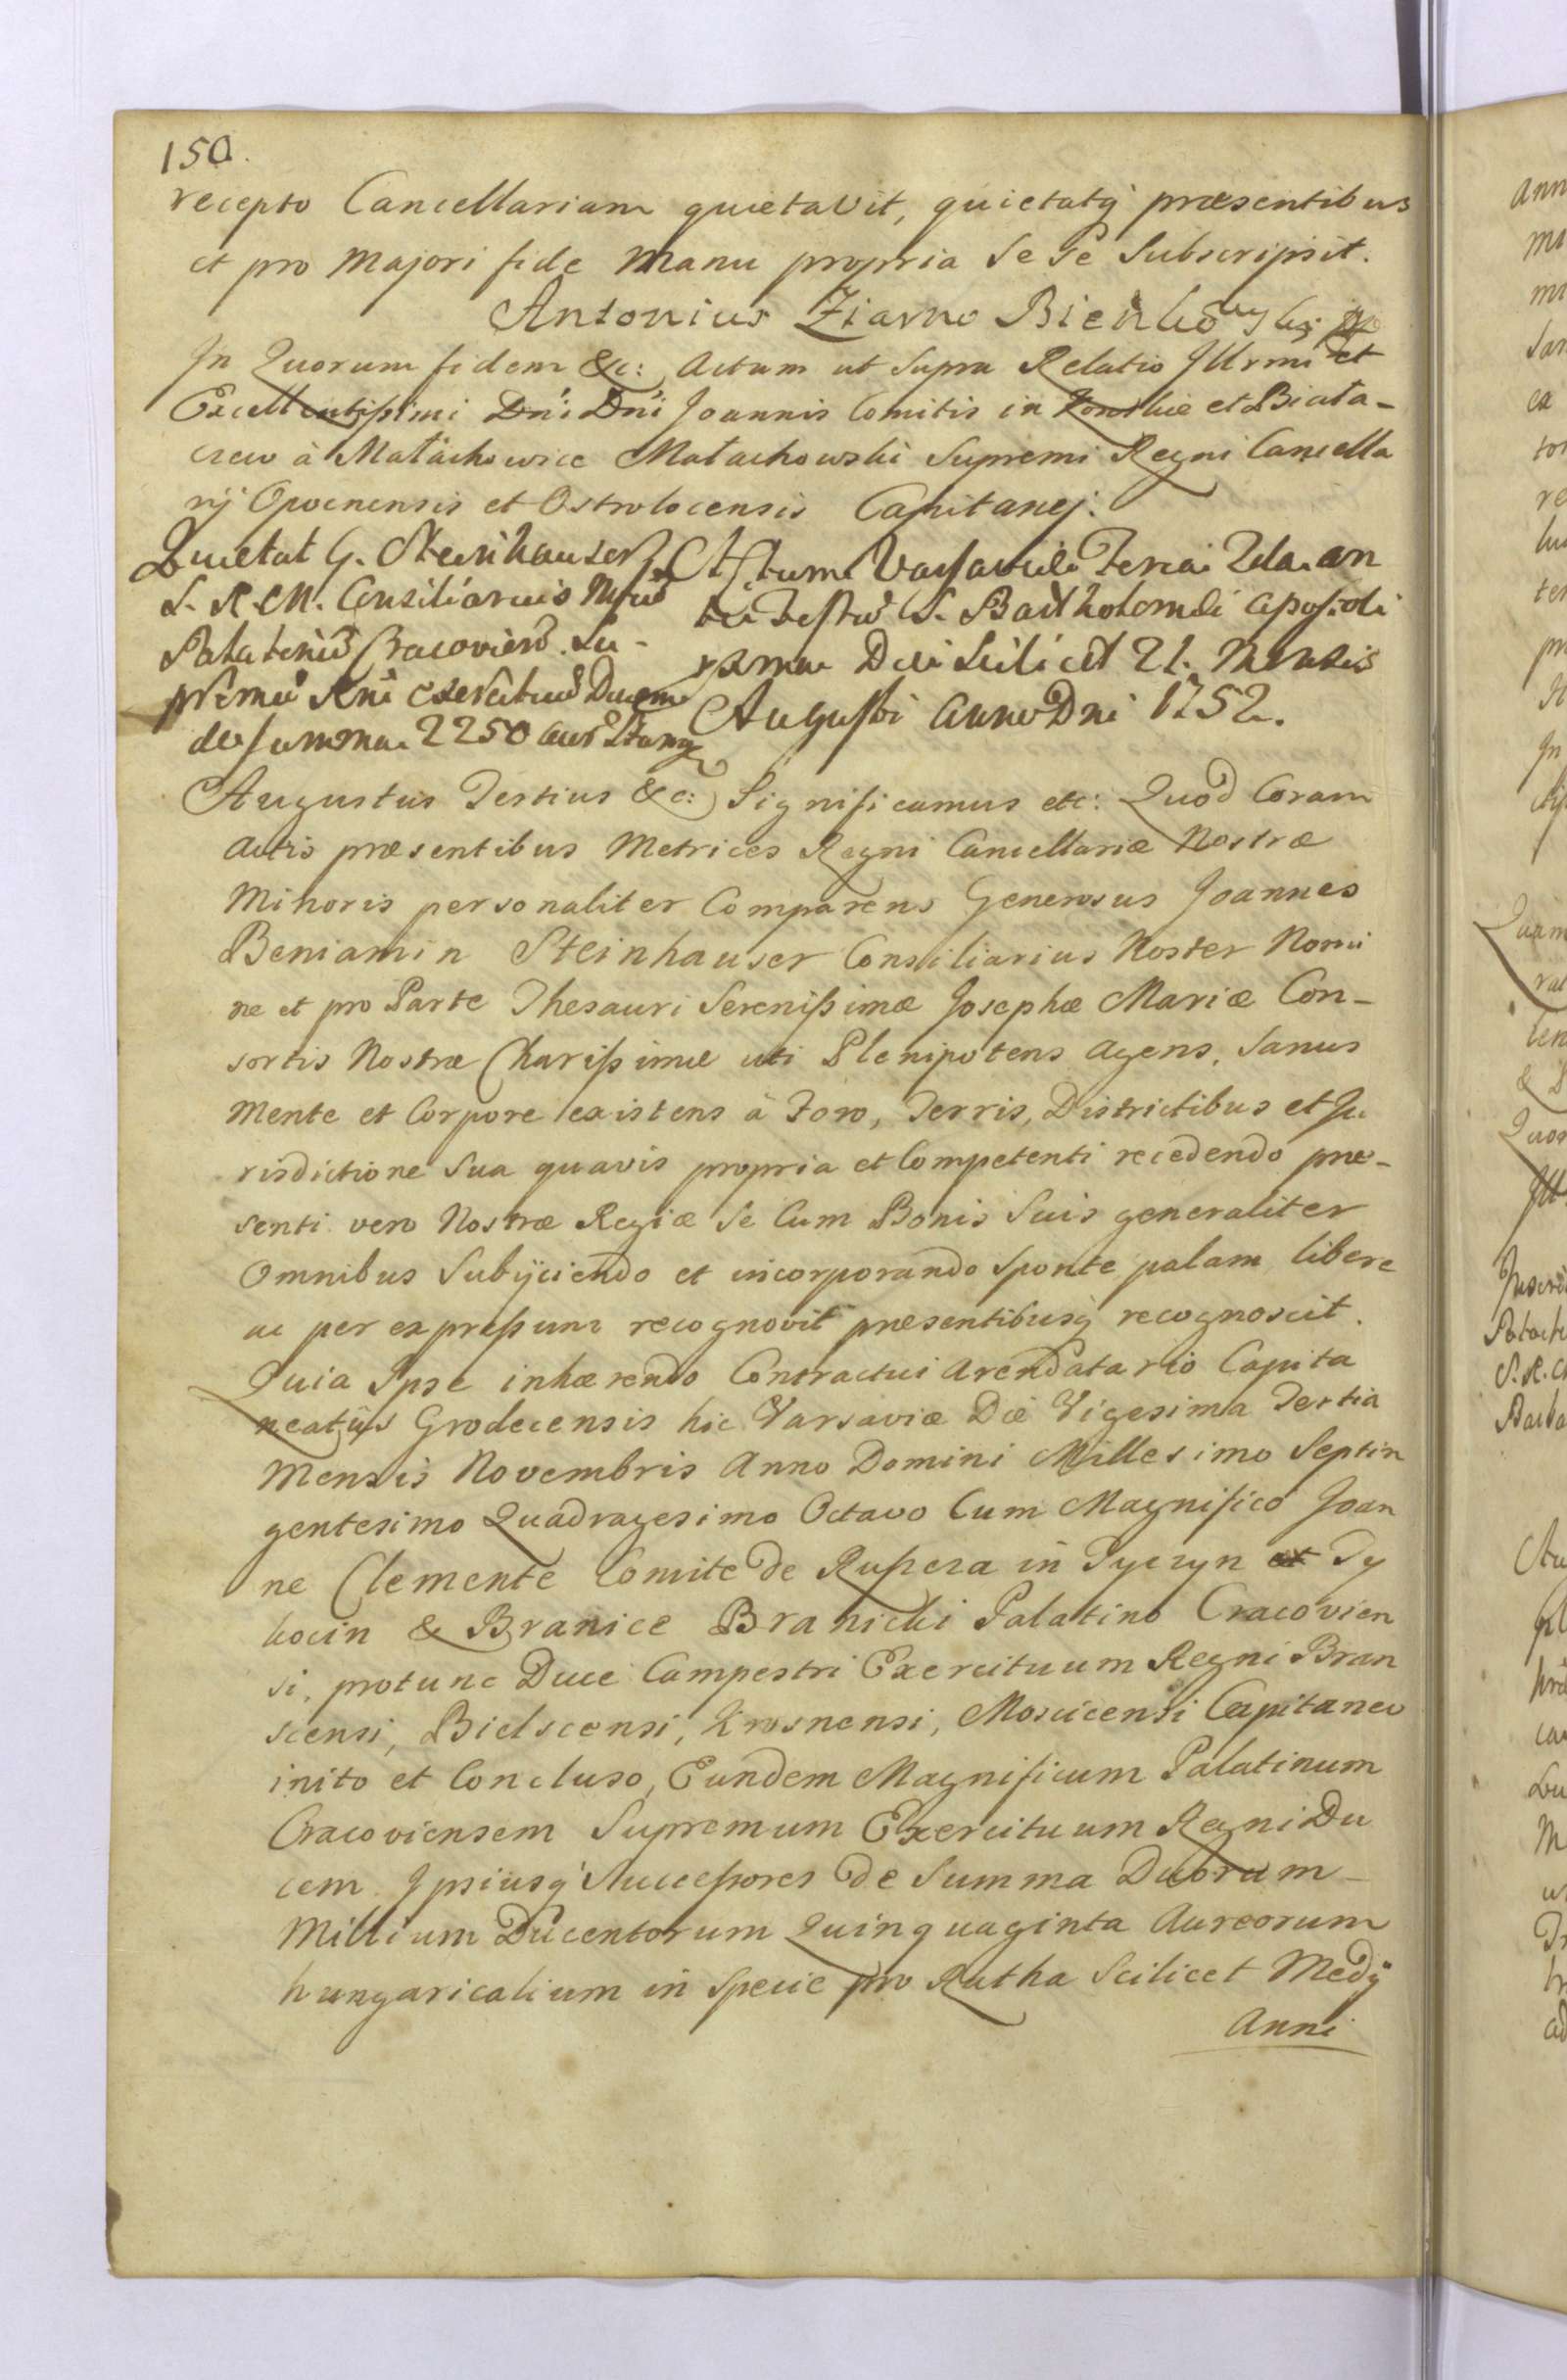 150.
recepto Cancellariam quietavit, quietatq́ præsentibus
et pro Majori fide Manu propria Se se Subscripsit.
Antonius Ziarno Bieńkowski
In Quorum fidem &c: Actum ut Supra Relatio Illrmi et
Excellentissimi Dn̄i Dn̄i Joannis Comitis in Konskie et Biała-
czew à Małachowice Małachowski Supremi Regni Cancella
rij Opocnensis et Ostrolocensis Capitanej.
Quietat G. Steinhauser
S. R. M. Consiliarius Mfcū
Palatinū Cracovien. Su-
premū Rni exercituū Ducem
de summa 2250 aur Hung
Actum Varsaviæ Feria 2da an
te Festū S. Bartholomæi Apostoli
Die Scilicet 21. Mensis
Augusti Anno Dni 1752.
Augustus Tertius &c: Significamus etc: Quod Coram
Actis præsentibus Metrices Regni Cancellariæ Nostræ
Minoris personaliter Comparens Generosus Joannes
Beniamin Steinhauser Consiliarius Noster Nomi
ne et pro Parte Thesauri Serenissimæ Josephæ Mariæ Con-
sortis Nostræ Charissimæ uti Plenipotens Agens, Sanus
Mente et Corpore existens à Foro, Terris, Districtibus et Ju
risdictione Sua quavis propria et Competenti recedendo præ-
senti vero Nostræ Regiæ Se Cum Bonis Suis generaliter
Omnibus Subijciendo et incorporando sponte palam libere
ac per expressum recognovit præsentibusq́ recognoscit.
Quia Ipse inhærendo Contractui Arendatario Capita
neatûs Grodecensis hic Varsaviæ Die Vigesima Tertia
Mensis Novembris Anno Domini Millesimo Septin
gentesimo Quadragesimo Octavo Cum Magnifico Joan
ne Clemente Comite de Ruszcza in Tyczyn et Ty
kocin & Branice Branicki Palatino Cracovien
si, protunc Duce Campestri Exercituum Regni Bran
scensi, Bielscensi, Krosnensi, Moscicensi Capitaneo
inito et Concluso, Eundem Magnificum Palatinum
Cracoviensem Supremum Exercituum Regni Du
cem Ipsiusq́ Successores de Summa Duorum
Millium Ducentorum Quinquaginta Aureorum
hungaricalium in Specie pro Ratha Scilicet Medij
Anni